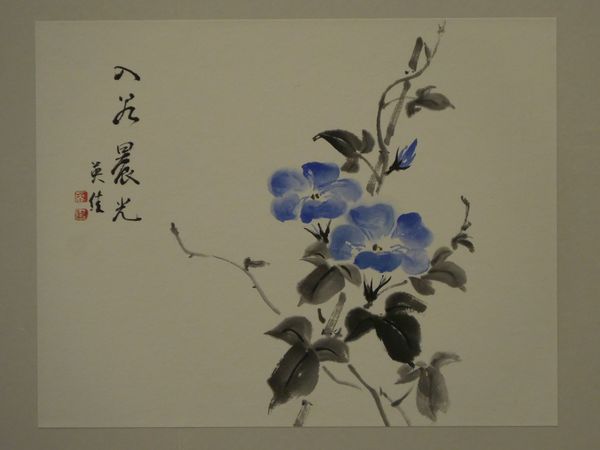 入谷晨光
英佳